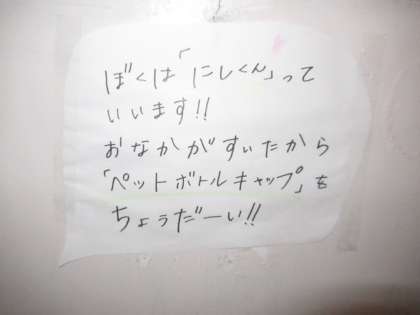 ぼくは「にしくん」って
いいます!!
おなかがすいたから
「ペットボトルキャップ」を
ちょうだーい!!